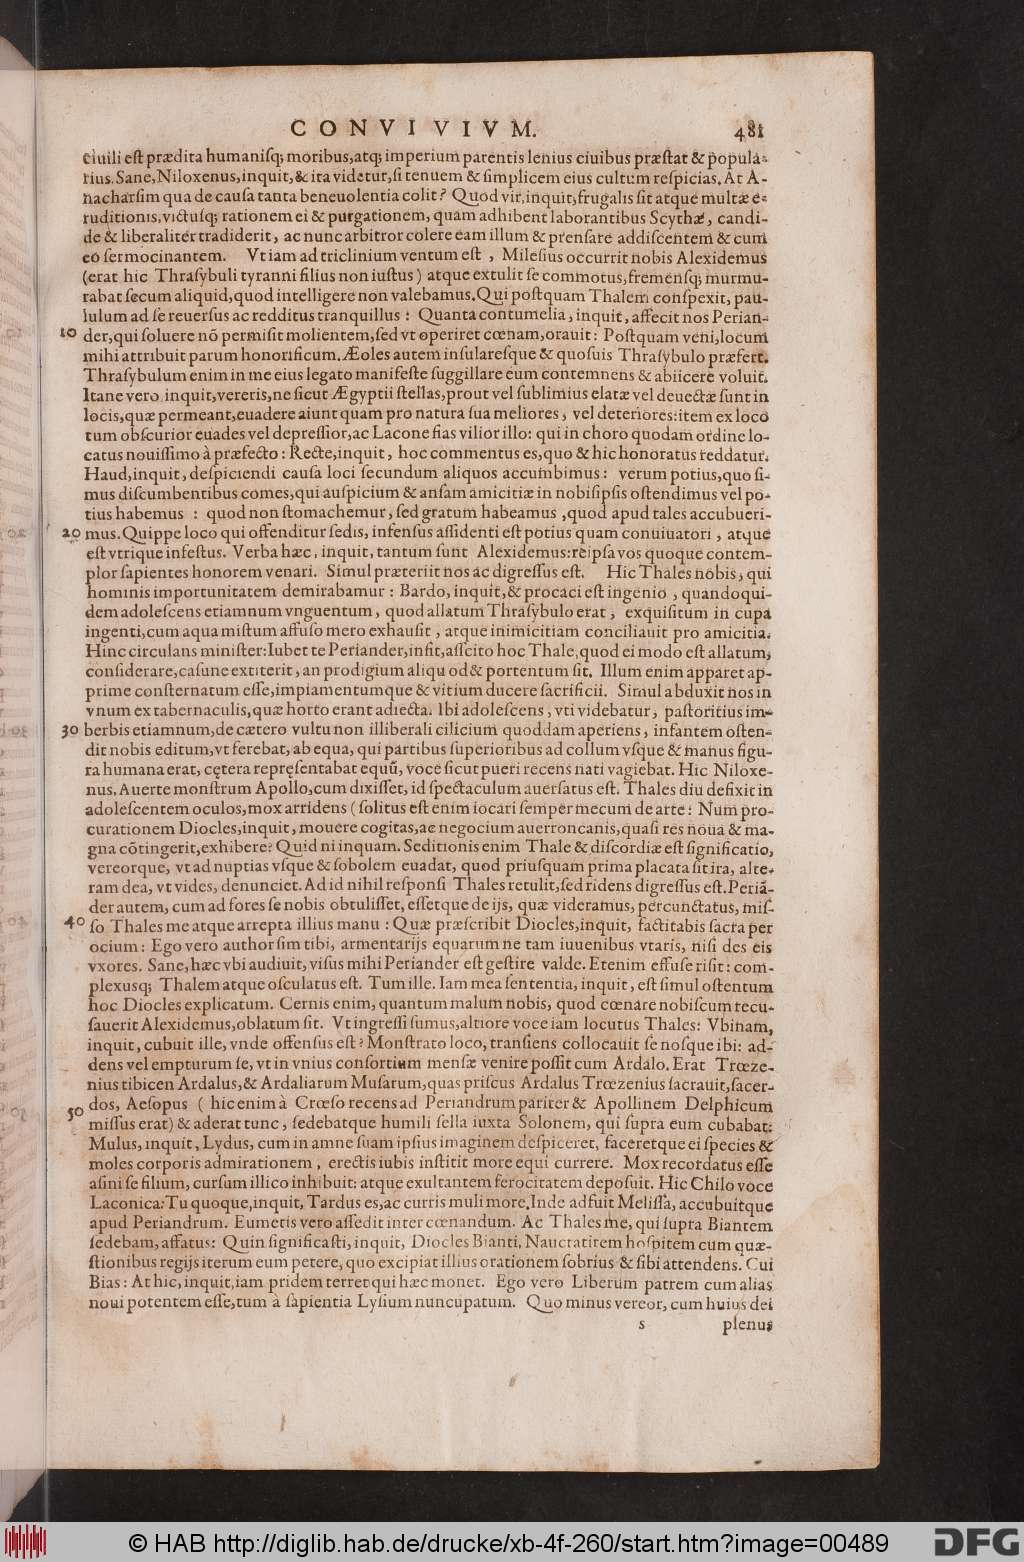 CONVIVIVM. 481
ciuili est prædita humanisq; moribus,atq; imperium parentis lenius ciuibus præstat & popula-
rius. Sane, Niloxenus, inquit, & ita videtur, si tenuem & simplicem eius cultum respicias. At A-
nacharsim qua de causa tanta beneuolentia colit? Quod vir, inquit, frugalis sit atque multæ e-
ruditionis, victusq; rationem ei & purgationem, quam adhibent laborantibus Scythæ, candi-
de & liberaliter tradiderit, ac nunc arbitror colere eam illum & prensare addiscentem & cum
eo sermocinantem. Vt iam ad triclinium ventum est, Milesius occurrit nobis Alexidemus
(erat hic Thrasybuli tyranni filius non iustus) atque extulit se commotus, fremensq; murmu-
rabat secum aliquid, quod intelligere non valebamus. Qui postquam Thalem conspexit, pau-
lulum ad se reuersus ac redditus tranquillus: Quanta contumelia, inquit, affecit nos Perian-
10 der, qui soluere nō permisit molientem, sed vt operiret cœnam, orauit: Postquam veni, locum
mihi attribuit parum honorificum. Æoles autem insularesque & quosuis Thrasybulo præfert.
Thrasybulum enim in me eius legato manifeste suggillare eum contemnens & abiicere voluit.
Itane vero inquit, vereris, ne sicut Ægyptii stellas, prout vel sublimius elatæ vel deuectæ sunt in
locis, quæ permeant, euadere aiunt quam pro natura sua meliores, vel deteriores: item ex loco
tum obscurior euades vel depressior, ac Lacone fias vilior illo: qui in choro quodam ordine lo-
catus nouissimo à præfecto: Recte, inquit, hoc commentus es, quo & hic honoratus reddatur.
Haud, inquit, despiciendi causa loci secundum aliquos accumbimus: verum potius, quo si-
mus discumbentibus comes, qui auspicium & ansam amicitiæ in nobisipsis ostendimus vel po-
tius habemus: quod non stomachemur, sed gratum habeamus, quod apud tales accubueri-
20 mus. Quippe loco qui offenditur sedis, infensus assidenti est potius quam conuiuatori, atque
est vtrique infestus. Verba hæc, inquit, tantum sunt Alexidemus: reipsa vos quoque contem-
plor sapientes honorem venari. Simul præteriit nos ac digressus est. Hic Thales nobis, qui
hominis importunitatem demirabamur: Bardo, inquit, & procaci est ingenio, quandoqui-
dem adolescens etiamnum vnguentum, quod allatum Thrasybulo erat, exquisitum in cupa
ingenti, cum aqua mistum affuso mero exhausit, atque inimicitiam conciliauit pro amicitia.
Hinc circulans minister: Iubet te Periander, infit, ascito hoc Thale, quod ei modo est allatum,
considerare, casune extiterit, an prodigium aliquod & portentum sit. Illum enim apparet ap-
prime consternatum esse, impiamentumque & vitium ducere sacrificii. Simul abduxit nos in
vnum ex tabernaculis, quæ horto erant adiecta. Ibi adolescens, vti videbatur, pastoritius im-
30 berbis etiamnum, de cætero vultu non illiberali cilicium quoddam aperiens, infantem osten-
dit nobis editum, vt ferebat, ab equa, qui partibus superioribus ad collum vsque & manus figu-
ra humana erat, cętera repręsentabat equū, voce sicut pueri recens nati vagiebat. Hic Niloxe-
nus, Auerte monstrum Apollo, cum dixisset, id spectaculum auersatus est. Thales diu defixit in
adolescentem oculos, mox arridens (solitus est enim iocari semper mecum de arte: Num pro-
curationem Diocles, inquit, mouere cogitas, ac negocium auerroncanis, quasi res noua & ma-
gna cōtingerit, exhibere? Quid ni inquam. Seditionis enim Thale & discordiæ est significatio,
vereorque, vt ad nuptias vsque & sobolem euadat, quod priusquam prima placata sit ira, alte-
ram dea, vt vides, denunciet. Ad id nihil responsi Thales retulit, sed ridens digressus est. Periā-
der autem, cum ad fores se nobis obtulisset, essetque de ijs, quæ videramus, percunctatus, mis-
40 so Thales me atque arrepta illius manu: Quæ præscribit Diocles, inquit, factitabis sacra per
ocium: Ego vero author sim tibi, armentarijs equarum ne tam iuuenibus vtaris, nisi des eis
vxores. Sane, hæc vbi audiuit, visus mihi Periander est gestire valde. Etenim effuse risit: com-
plexusq; Thalem atque osculatus est. Tum ille. Iam mea sententia, inquit, est simul ostentum
hoc Diocles explicatum. Cernis enim, quantum malum nobis, quod cœnare nobiscum recu-
sauerit Alexidemus, oblatum sit. Vt ingressi sumus, altiore voce iam locutus Thales: Vbinam,
inquit, cubuit ille, vnde offensus est? Monstrato loco, transiens collocauit se nosque ibi: ad-
dens vel empturum se, vt in vnius consortium mensæ venire possit cum Ardalo. Erat Trœze-
nius tibicen Ardalus, & Ardaliarum Musarum, quas priscus Ardalus Trœzenius sacrauit, sacer-
50 dos, Aesopus (hic enim à Crœso recens ad Periandrum pariter & Apollinem Delphicum
missus erat) & aderat tunc, sedebatque humili sella iuxta Solonem, qui supra eum cubabat:
Mulus, inquit, Lydus, cum in amne suam ipsius imaginem despiceret, faceretque ei species &
moles corporis admirationem, erectis iubis institit more equi currere. Mox recordatus esse
asini se filium, cursum illico inhibuit: atque exultantem ferocitatem deposuit. Hic Chilo voce
Laconica: Tu quoque, inquit, Tardus es, ac curris muli more. Inde adfuit Melissa, accubuitque
apud Periandrum. Eumetis vero assedit inter cœnandum. Ac Thales me, qui supra Biantem
sedebam, affatus: Quin significasti, inquit, Diocles Bianti, Naucratitem hospitem cum quæ-
stionibus regijs iterum eum petere, quo excipiat illius orationem sobrius & sibi attendens. Cui
Bias: At hic, inquit, iam pridem terret qui hæc monet. Ego vero Liberum patrem cum alias
noui potentem esse, tum à sapientia Lysium nuncupatum. Quo minus vereor, cum huius dei
s plenus
© HAB http://diglib.hab.de/drucke/xb-4f-260/start.htm?image=00489
DFG